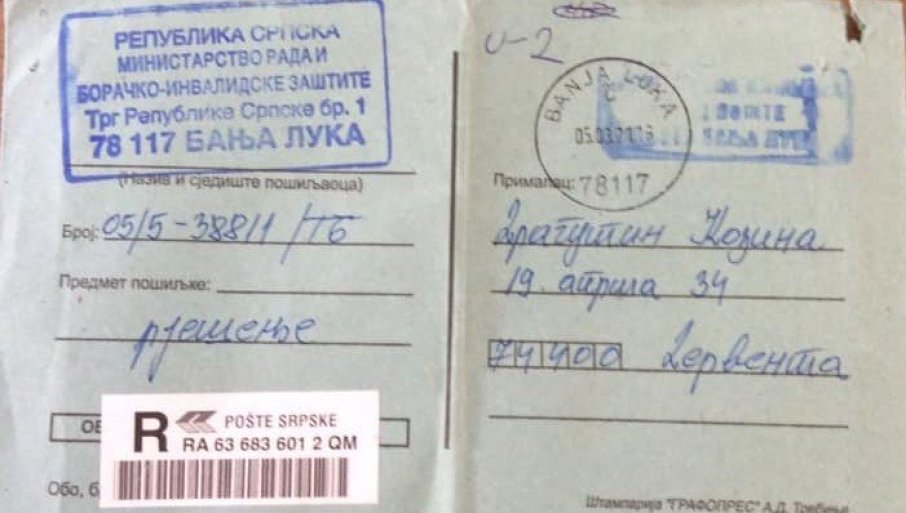 РЕПУБЛИКА СРПСКА
МИНИСТАРСТВО РАДА И
БОРАЧКО-ИНВАЛИДСКЕ ЗАШТИТЕ
Трг Републике Српске бр. 1
78 117 БАЊА ЛУКА
(Назив и сједиште пошиљаоца)
Број: 05/5-388/1 /ТБ
Предмет пошиљке:
рјешење
R POŠTE SRPSKE
RA 63 683 601 2 QM
υ-2
BANJA LUKA
78117
БАЊА ЛУКА
Прималац:
Драгутин Козина
19. априла 34
74400 Дервента
Штампарија "ГРАФОПРЕС" А.Д. Требиње